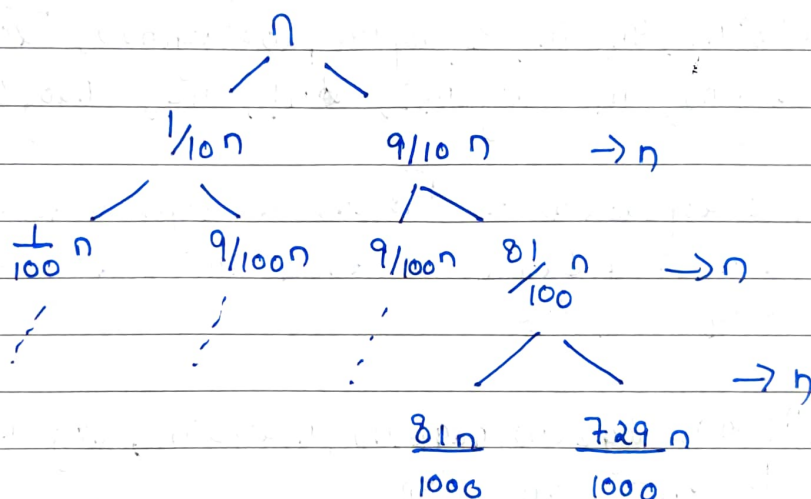 n
1/10 n 9/10 n → n
1/100 n 9/100 n 9/100 n 81/100 n → n
→ n
81n/1000 729n/1000